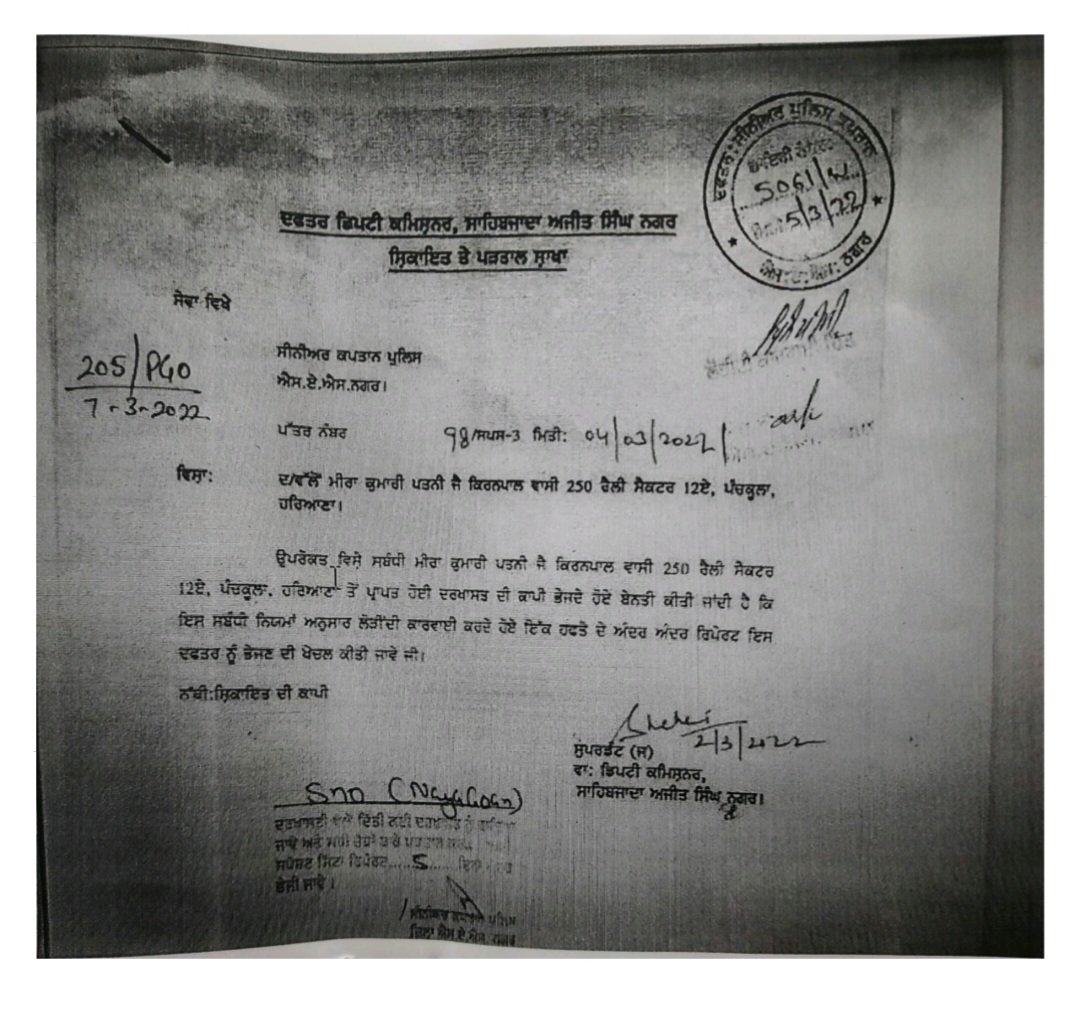 ਦਫਤਰ: ਸੀਨੀਅਰ ਪੁਲਿਸ ਕਪਤਾਨ
5061/
5/3/22
ਐਸ:ਏ:ਐਸ: ਨਗਰ
ਦਫਤਰ ਡਿਪਟੀ ਕਮਿਸ਼ਨਰ, ਸਾਹਿਬਜਾਦਾ ਅਜੀਤ ਸਿੰਘ ਨਗਰ
ਸ਼ਿਕਾਇਤ ਤੇ ਪੜਤਾਲ ਸ਼ਾਖਾ
ਸੇਵਾ ਵਿਖੇ
ਸੀਨੀਅਰ ਕਪਤਾਨ ਪੁਲਿਸ
ਐਸ.ਏ.ਐਸ.ਨਗਰ।
205/PGO
7-3-2022
ਪੱਤਰ ਨੰਬਰ 98/ਸਪਸ-3 ਮਿਤੀ: 04/03/2022
ਵਿਸ਼ਾ: ਦ/ਵੱਲੋਂ ਮੀਰਾ ਕੁਮਾਰੀ ਪਤਨੀ ਜੈ ਕਿਰਨਪਾਲ ਵਾਸੀ 250 ਰੈਲੀ ਸੈਕਟਰ 12ਏ, ਪੰਚਕੂਲਾ,
ਹਰਿਆਣਾ।
ਉਪਰੋਕਤ ਵਿਸ਼ੇ ਸਬੰਧੀ ਮੀਰਾ ਕੁਮਾਰੀ ਪਤਨੀ ਜੈ ਕਿਰਨਪਾਲ ਵਾਸੀ 250 ਰੈਲੀ ਸੈਕਟਰ
12ਏ, ਪੰਚਕੂਲਾ, ਹਰਿਆਣਾ ਤੋਂ ਪ੍ਰਾਪਤ ਹੋਈ ਦਰਖਾਸਤ ਦੀ ਕਾਪੀ ਭੇਜਦੇ ਹੋਏ ਬੇਨਤੀ ਕੀਤੀ ਜਾਂਦੀ ਹੈ ਕਿ
ਇਸ ਸਬੰਧੀ ਨਿਯਮਾਂ ਅਨੁਸਾਰ ਲੋੜੀਂਦੀ ਕਾਰਵਾਈ ਕਰਦੇ ਹੋਏ ਇੱਕ ਹਫਤੇ ਦੇ ਅੰਦਰ ਅੰਦਰ ਰਿਪੋਰਟ ਇਸ
ਦਫਤਰ ਨੂੰ ਭੇਜਣ ਦੀ ਖੇਚਲ ਕੀਤੀ ਜਾਵੇ ਜੀ।
ਨੱਥੀ:ਸ਼ਿਕਾਇਤ ਦੀ ਕਾਪੀ
2/3/2022
ਸੁਪਰਡੰਟ (ਜ)
ਵਾ: ਡਿਪਟੀ ਕਮਿਸ਼ਨਰ,
ਸਾਹਿਬਜਾਦਾ ਅਜੀਤ ਸਿੰਘ ਨਗਰ।
SHO (NayaGoan)
ਜਾਵੇ ਅਤੇ
ਰਿਪੋਰਟ.....5.....
ਭੇਜੀ ਜਾਵੇ।
ਸੀਨੀਅਰ ਕਪਤਾਨ ਪੁਲਿਸ
ਜ਼ਿਲ੍ਹਾ ਐਸ.ਏ.ਐਸ. ਨਗਰ